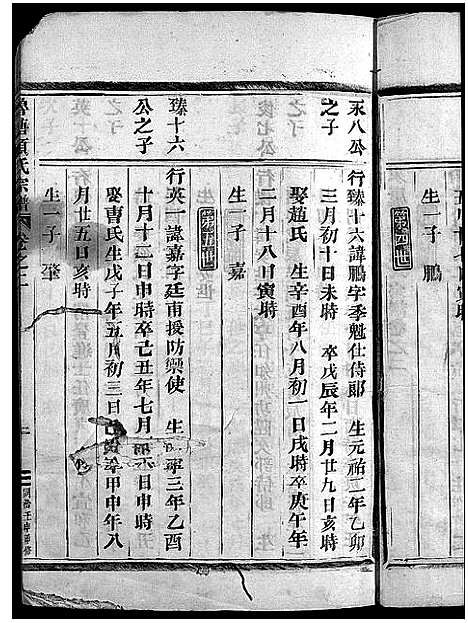 五月十日寅時
生一子 鵬
第四世
永八公之子
行臻十六諱鵬字季魁仕侍郎 生元祐二年乙卯
三月初十日未時 卒戊辰年二月廿九日亥時
娶趙氏 生辛酉年八月初一日戌時卒庚午年
二月十八日寅時
生一子 嘉
第五世
臻十六公之子
行英一諱嘉字廷甫援防禦使 生 寧三年乙酉
十月十二日申時卒己丑年七月 六日申時
娶曹氏生戊子年五月初三日 時卒甲申年八
月廿五日亥時
生一子 肇
項氏宗譜 卷之一
同治壬申重修